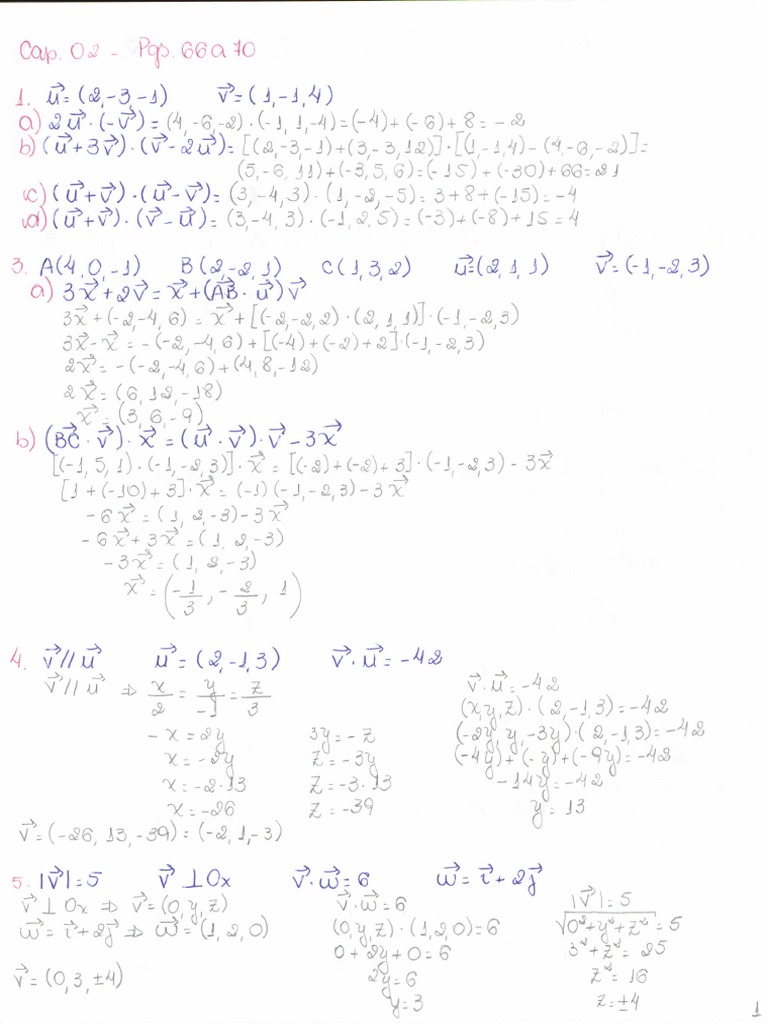 Cap. 02 - Pgs. 66 a 70
1. u⃗ = (2,-3,-1) v⃗ = (1,-1,4)
a) 2u⃗ · (-v⃗) = (4,-6,-2) · (-1,1,-4) = (-4) + (-6) + 8 = -2
b) (u⃗ + 3v⃗) · (v⃗ - 2u⃗) = [(2,-3,-1) + (3,-3,12)] · [(1,-1,4) - (4,-6,-2)] =
(5,-6,11) + (-3,5,6) = (-15) + (-30) + 66 = 21
c) (u⃗ + v⃗) · (u⃗ - v⃗) = (3,-4,3) · (1,-2,-5) = 3 + 8 + (-15) = -4
d) (u⃗ + v⃗) · (v⃗ - u⃗) = (3,-4,3) · (-1,2,5) = (-3) + (-8) + 15 = 4
3. A(4,0,-1) B(2,-2,1) C(1,3,2) u⃗ = (2,1,1) v⃗ = (-1,-2,3)
a) 3x⃗ + 2v⃗ = x⃗ + (AB⃗ · u⃗) v⃗
3x⃗ + (-2,-4,6) = x⃗ + [(-2,-2,2) · (2,1,1)] · (-1,-2,3)
3x⃗ - x⃗ = -(-2,-4,6) + [(-4) + (-2) + 2] · (-1,-2,3)
2x⃗ = -(-2,-4,6) + (4,8,-12)
2x⃗ = (6,12,-18)
x⃗ = (3,6,-9)
b) (BC⃗ · v⃗) · x⃗ = (u⃗ · v⃗) · v⃗ - 3x⃗
[(-1,5,1) · (-1,-2,3)] · x⃗ = [(-2) + (-2) + 3] · (-1,-2,3) - 3x⃗
[1 + (-10) + 3] · x⃗ = (-1)(-1,-2,3) - 3x⃗
-6x⃗ = (1,2,-3) - 3x⃗
-6x⃗ + 3x⃗ = (1,2,-3)
-3x⃗ = (1,2,-3)
x⃗ = (-1/3, -2/3, 1)
4. v⃗ // u⃗ u⃗ = (2,-1,3) v⃗ · u⃗ = -42
v⃗ // u⃗ ⇒ x/2 = y/-1 = z/3
-x = 2y 3y = -z
x = -2y z = -3y
x = -2·13 z = -3·13
x = -26 z = -39
v⃗ · u⃗ = -42
(x,y,z) · (2,-1,3) = -42
(-2y,y,-3y) · (2,-1,3) = -42
(-4y) + (-y) + (-9y) = -42
-14y = -42
y = 13
v⃗ = (-26,13,-39) = (-2,1,-3)
5. |v⃗| = 5 v⃗ ⊥ 0x v⃗ · w⃗ = 6 w⃗ = i⃗ + 2j⃗
v⃗ ⊥ 0x ⇒ v⃗ = (0,y,z)
w⃗ = i⃗ + 2j⃗ ⇒ w⃗ = (1,2,0)
v⃗ = (0,3,±4)
v⃗ · w⃗ = 6
(0,y,z) · (1,2,0) = 6
0 + 2y + 0 = 6
2y = 6
y = 3
|v⃗| = 5
√(0² + y² + z²) = 5
3² + z² = 25
z² = 16
z = ±4
1